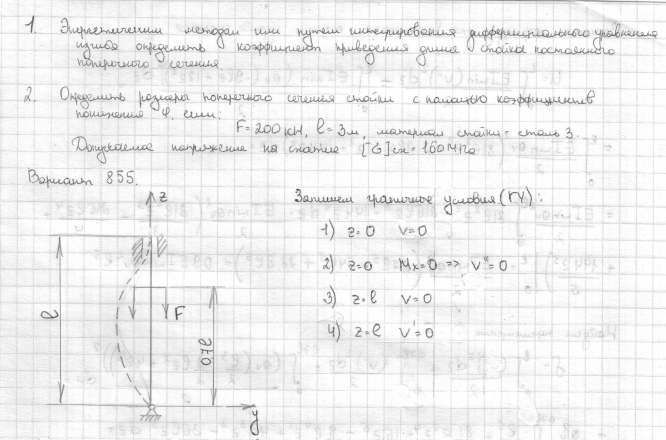 1. Энергетическим методом или путем интегрирования дифференциального уравнения
изгиба определить коэффициент приведения длины стойки постоянного
поперечного сечения
2. Определить размеры поперечного сечения стойки с помощью коэффициентов
понижения φ, если:
F = 200 кН, l = 3 м, материал стойки = сталь 3.
Допускаемое напряжение на сжатие [σ]сж = 160 МПа
Вариант 855.
Запишем граничные условия (ГУ):
1) z=0 v=0
2) z=0 Mx=0 => v''=0
3) z=l v=0
4) z=l v'=0
z
l
F
0,7l
y